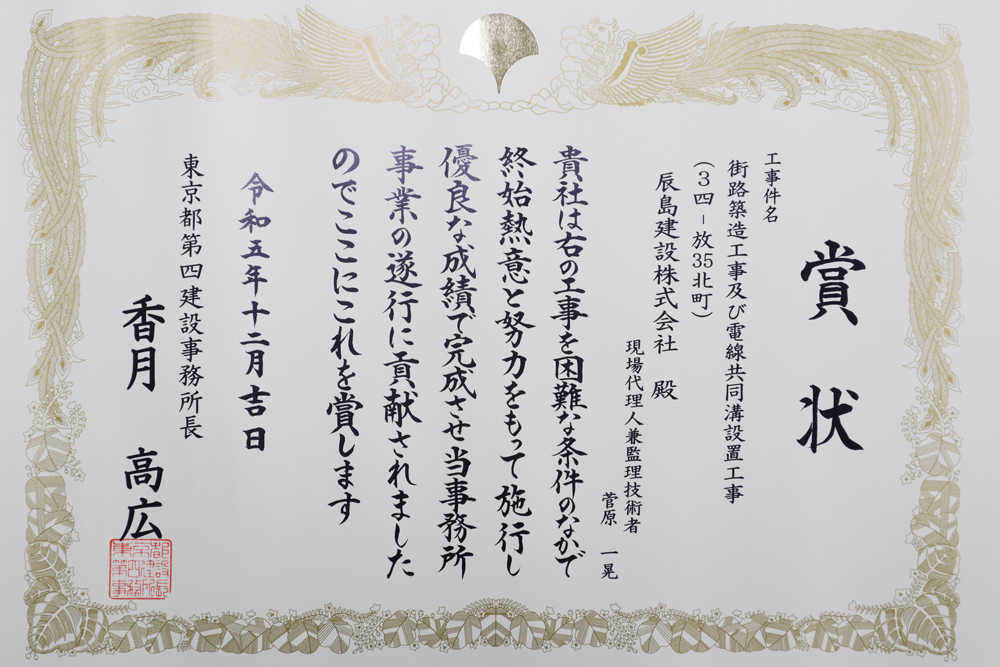 賞状
工事件名
街路築造工事及び電線共同溝設置工事
（３四－放35北町）
辰島建設株式会社 殿
現場代理人兼監理技術者
菅原 一晃
貴社は右の工事を困難な条件のなかで
終始熱意と努力をもって施行し
優良な成績で完成させ当事務所
事業の遂行に貢献されました
のでここにこれを賞します
令和五年十二月吉日
東京都第四建設事務所長
香月 高広